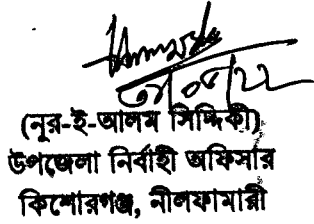 (নূর-ই-আলম সিদ্দিকী)
উপজেলা নির্বাহী অফিসার
কিশোরগঞ্জ, নীলফামারী